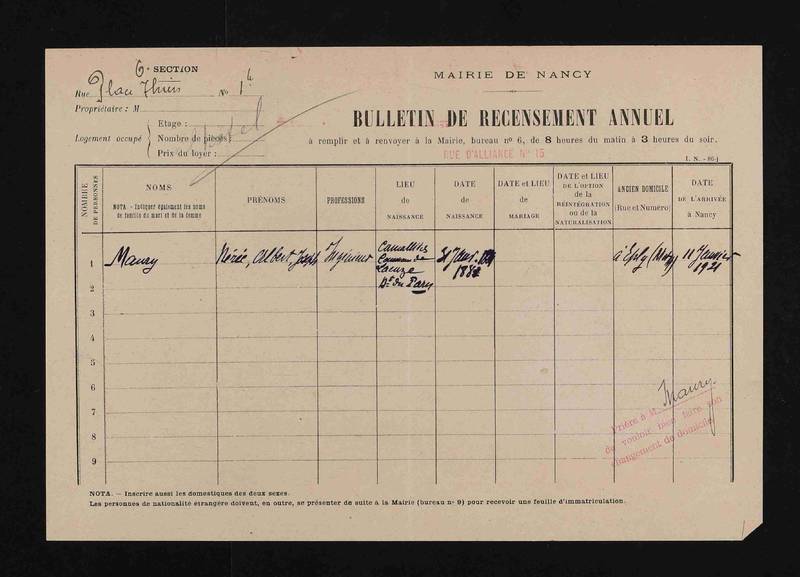 6e SECTION
Rue Place Thiers No 14
Propriétaire : M
Logement occupé
Etage :
Nombre de pièces :
Prix du loyer :
Hôtel
MAIRIE DE NANCY
BULLETIN DE RECENSEMENT ANNUEL
à remplir et à renvoyer à la Mairie, bureau no 6, de 8 heures du matin à 3 heures du soir.
RUE D'ALLIANCE No 15
I. N. - 86-j
NOMBRE DE PERSONNES
NOMS
NOTA - Indiquer également les noms de famille du mari et de la femme
PRÉNOMS
PROFESSIONS
LIEU de NAISSANCE
DATE de NAISSANCE
DATE et LIEU de MARIAGE
DATE et LIEU DE L'OPTION de la RÉINTÉGRATION ou de la NATURALISATION
ANCIEN DOMICILE (Rue et Numéro)
DATE DE L'ARRIVÉE à Nancy
1 Maury Nérée, Albert, Joseph Ingénieur
Commune de Lacuze Dt du Tarn
21 Janv. 1884
à (Metz)
11 Janvier 1921
2
3
4
5
6
7
8
9
Prière à M. Maury.
de vouloir bien faire son
changement de domicile
NOTA. — Inscrire aussi les domestiques des deux sexes.
Les personnes de nationalité étrangère doivent, en outre, se présenter de suite à la Mairie (bureau no 9) pour recevoir une feuille d'immatriculation.